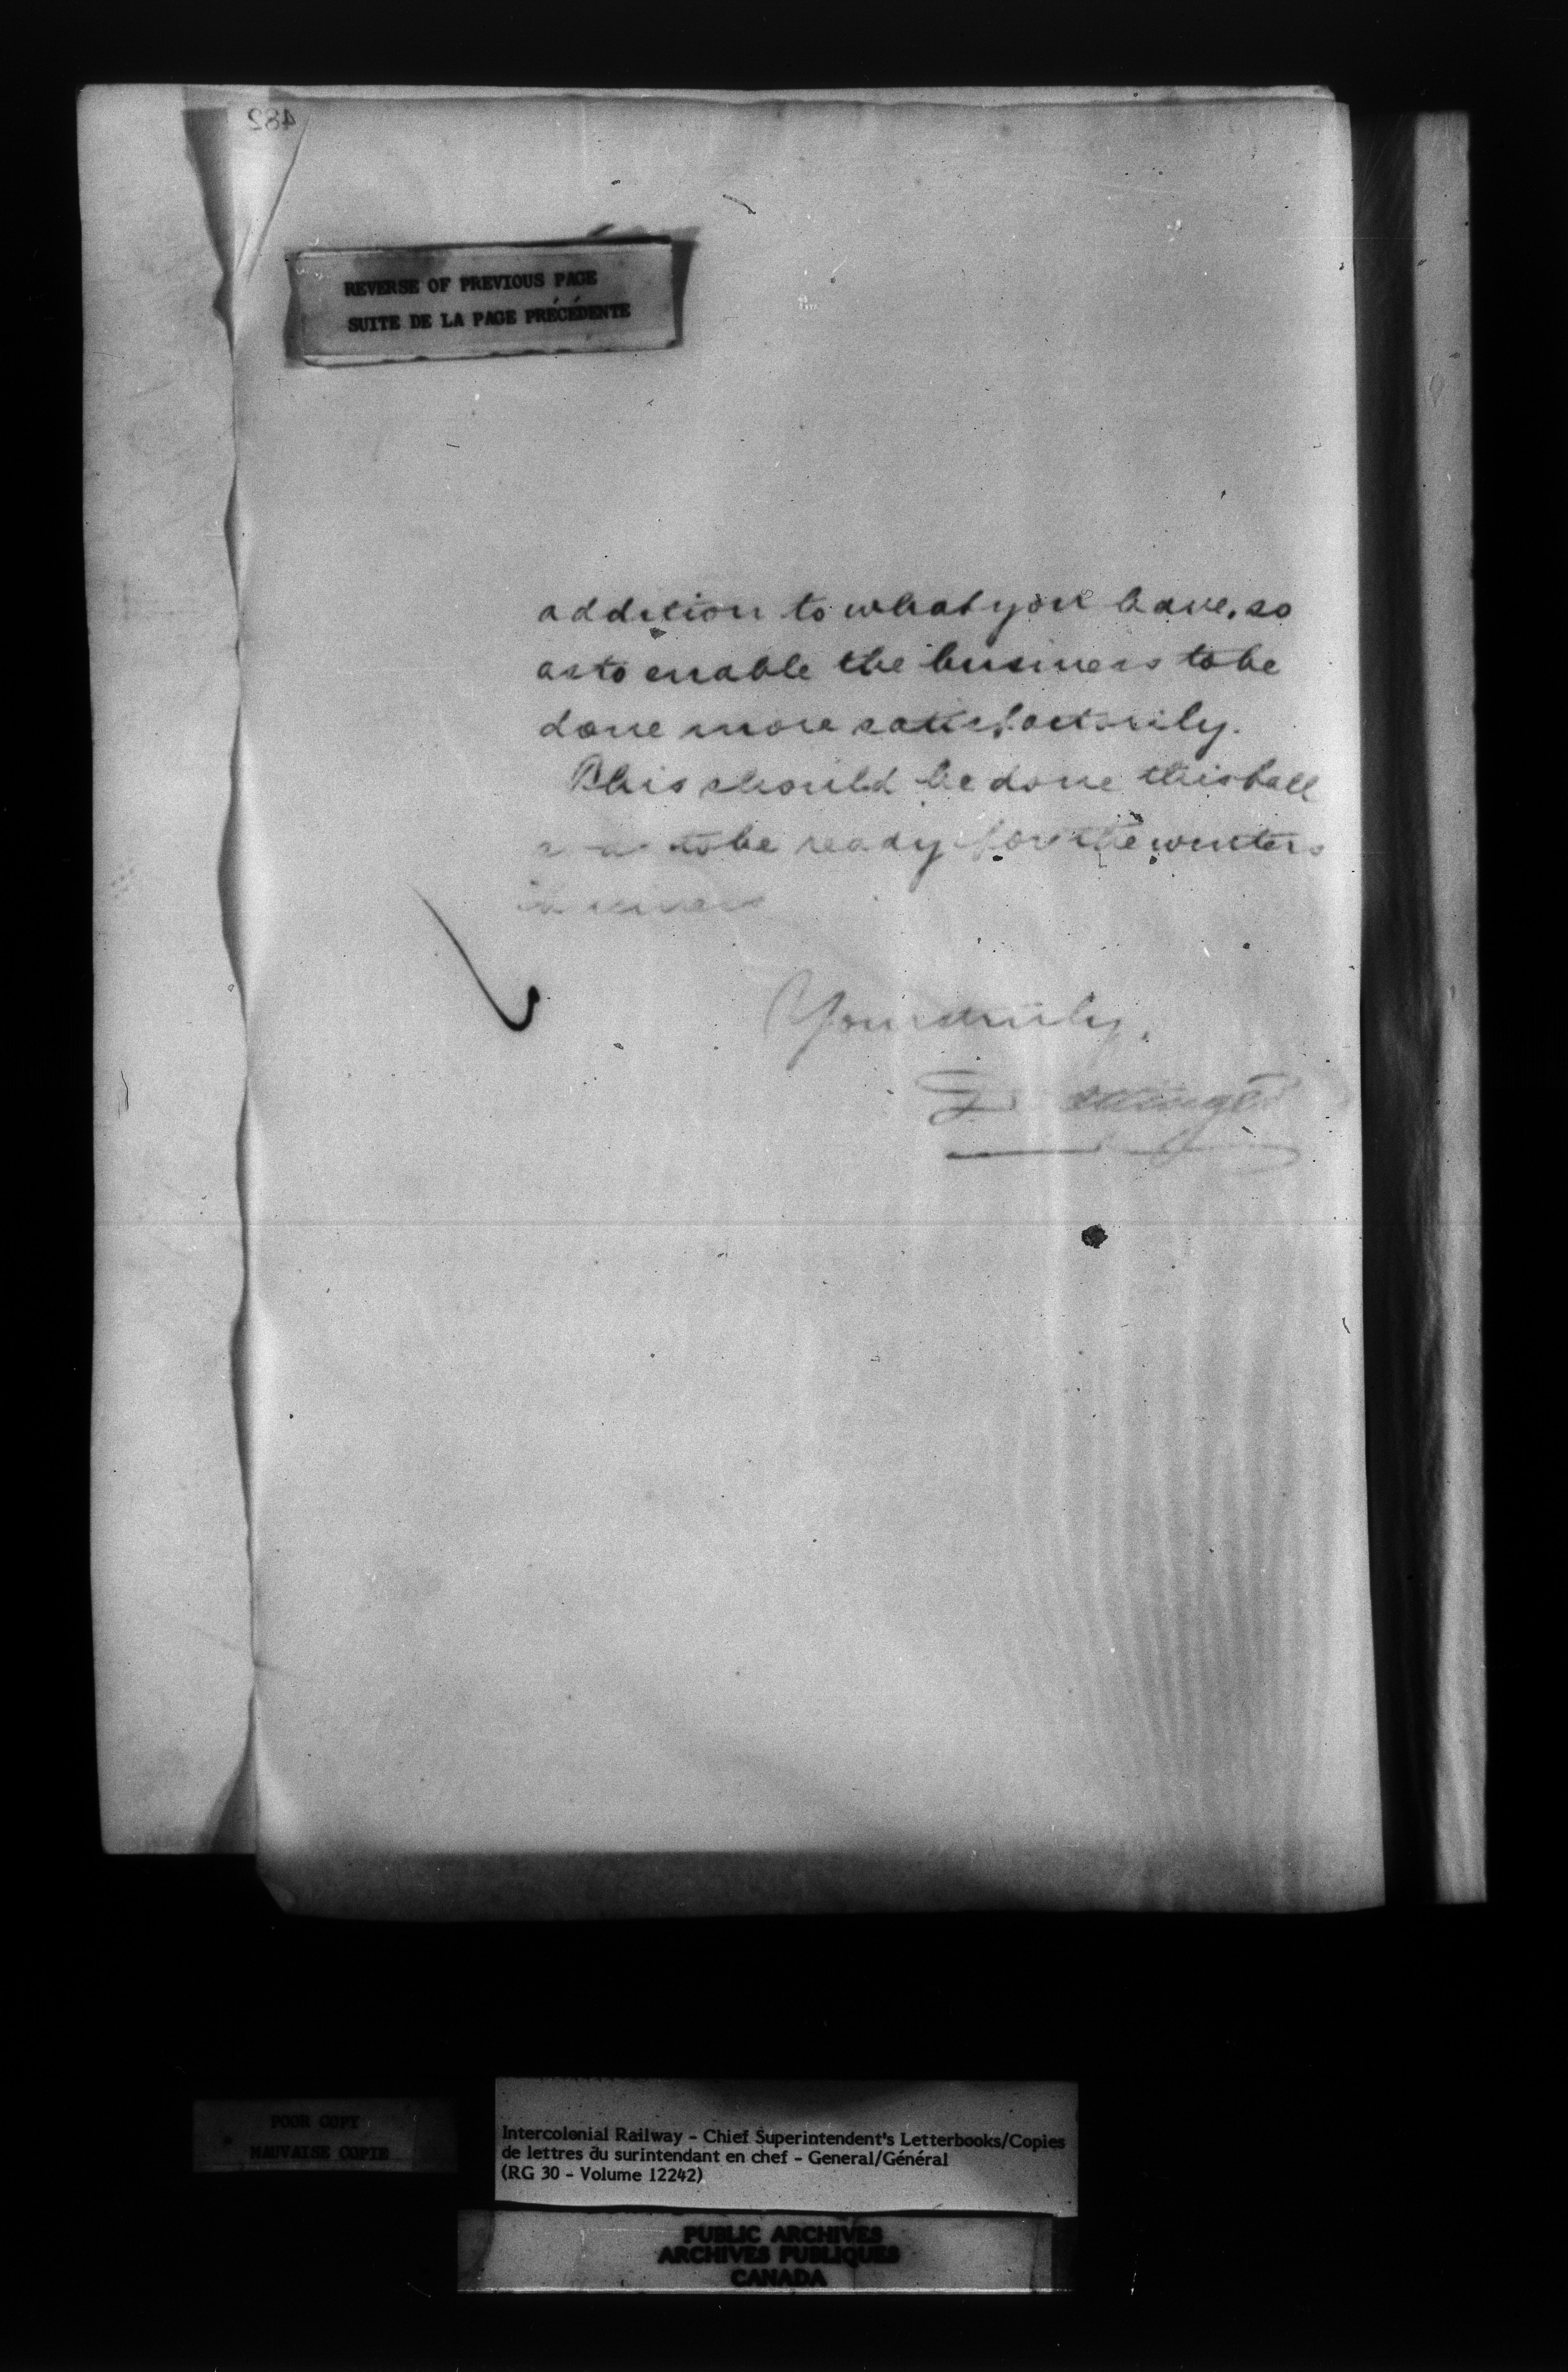 482
REVERSE OF PREVIOUS PAGE
SUITE DE LA PAGE PRÉCÉDENTE
addition to what you have, so
as to enable the business to be
done more satisfactorily.
This should be done this fall
so as to be ready for the winters
business
Yours truly,
D Pottinger
POOR COPY
MAUVAISE COPIE
Intercolonial Railway - Chief Superintendent's Letterbooks/Copies
de lettres du surintendant en chef - General/Général
(RG 30 - Volume 12242)
PUBLIC ARCHIVES
ARCHIVES PUBLIQUES
CANADA